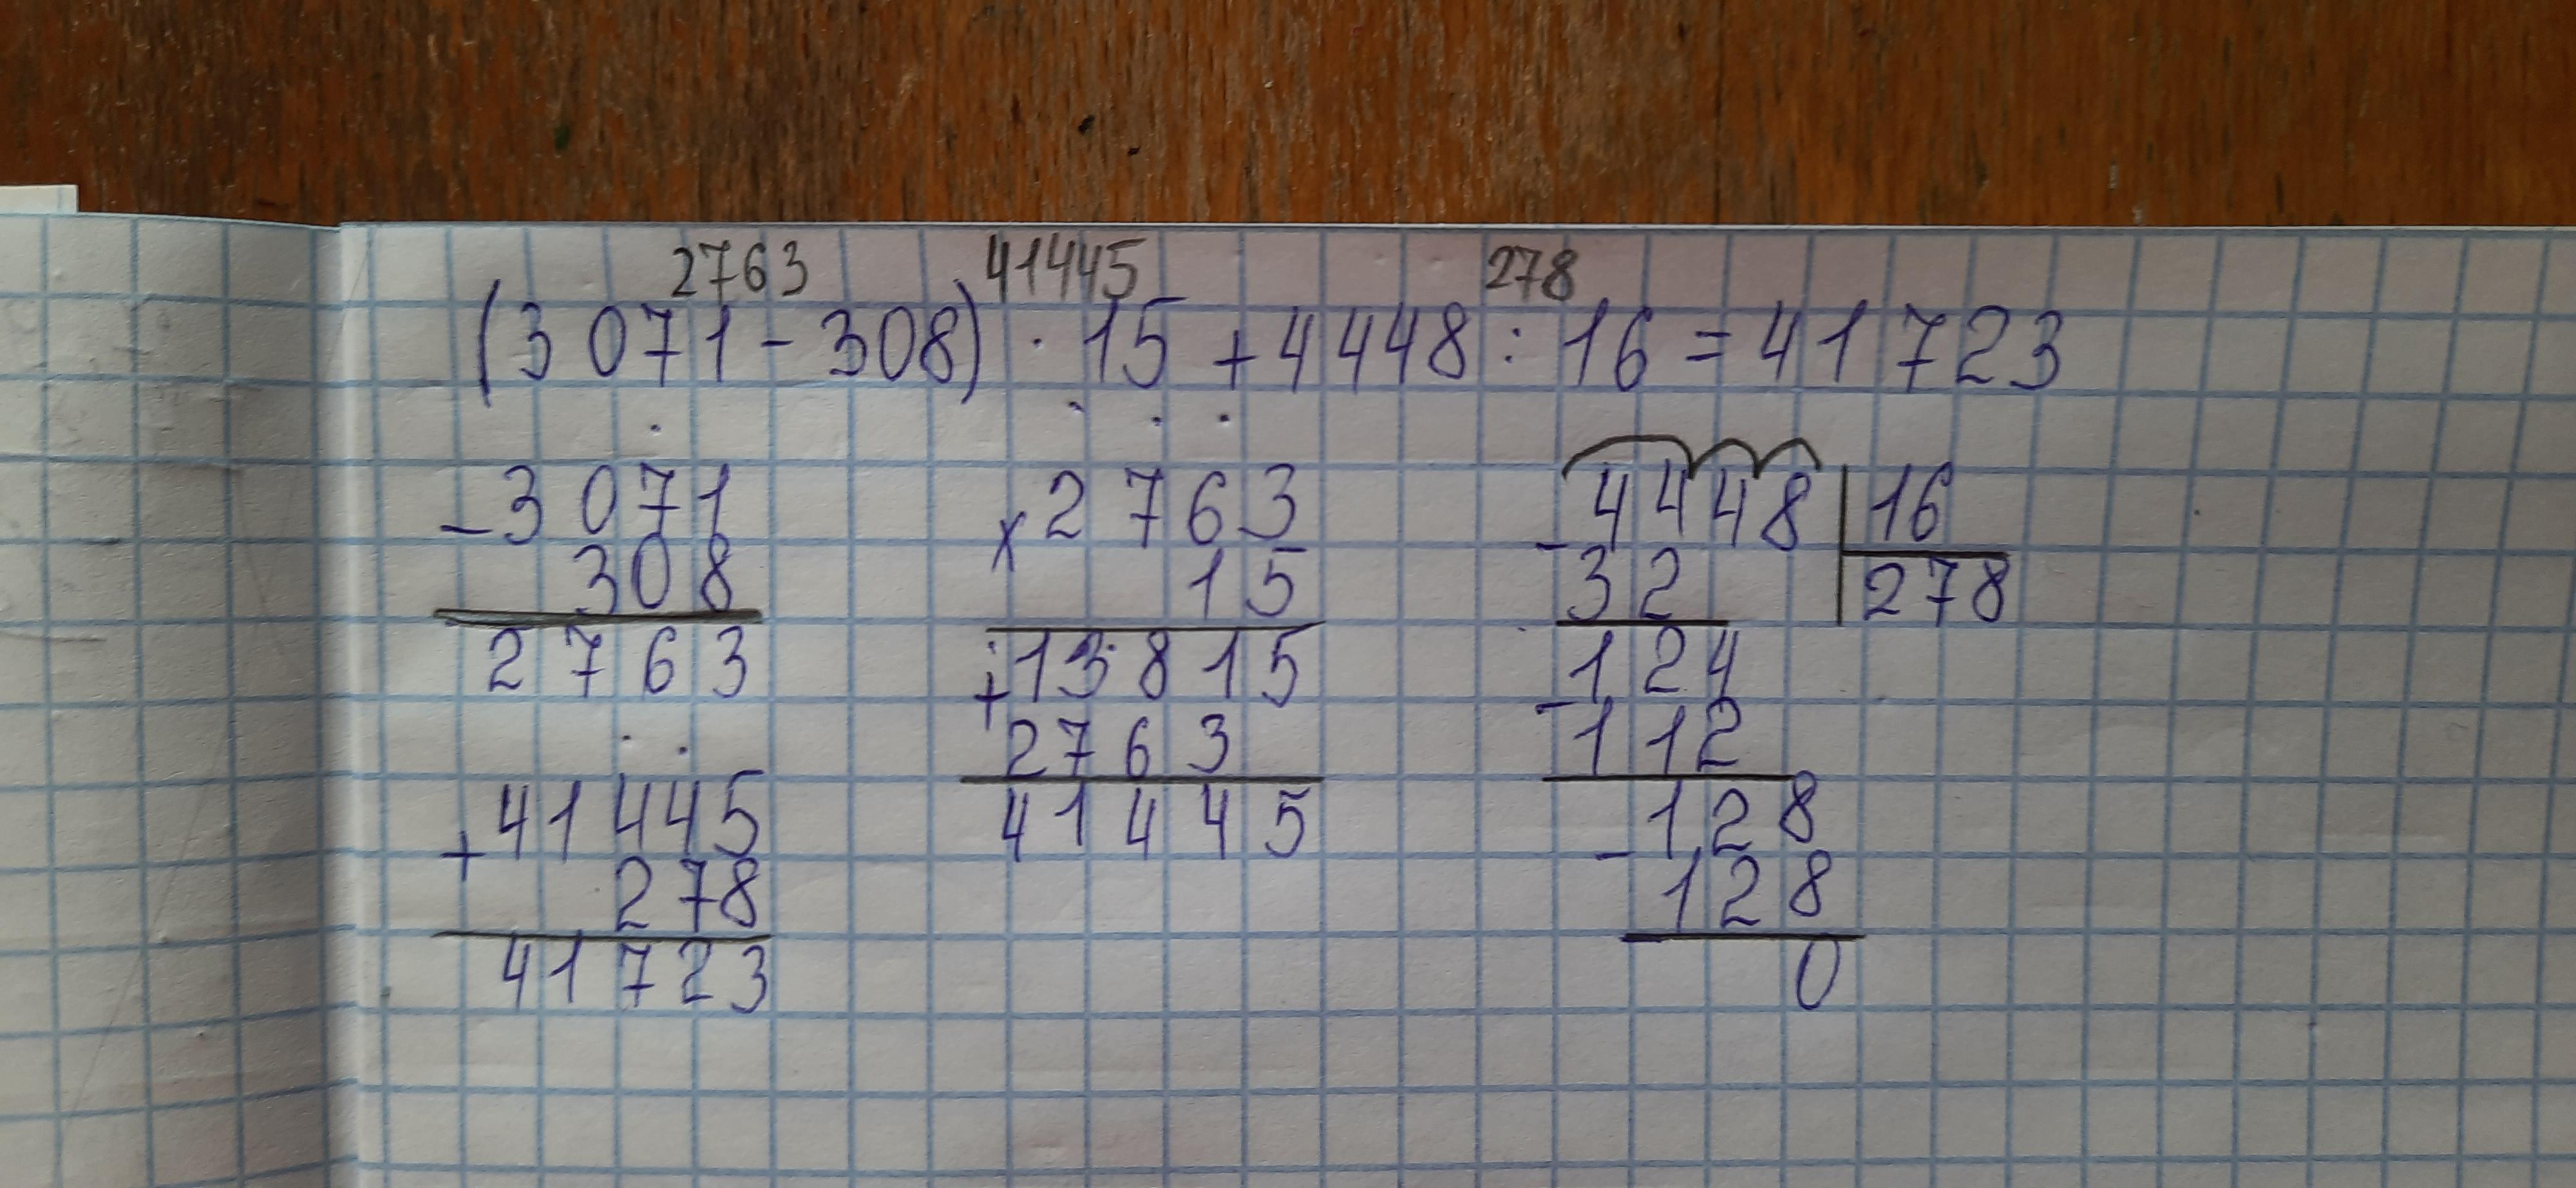 2763 41445 278
(3071-308) · 15 + 4448 : 16 = 41723
-3071
308
2763
x2763
15
+13815
2763
41445
-4448 16
32 278
124
-112
128
-128
0
41445
+278
41723